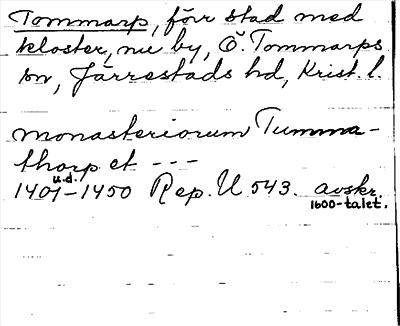 Tommarp, förr stad med
kloster, nu by, Ö. Tommarps
sn, Järrestads hd, Krist. l.
monasteriorum Tumma-
thorp et ---
1401-1450 Rep. U 543. avskr.
u.d. 1600-talet.